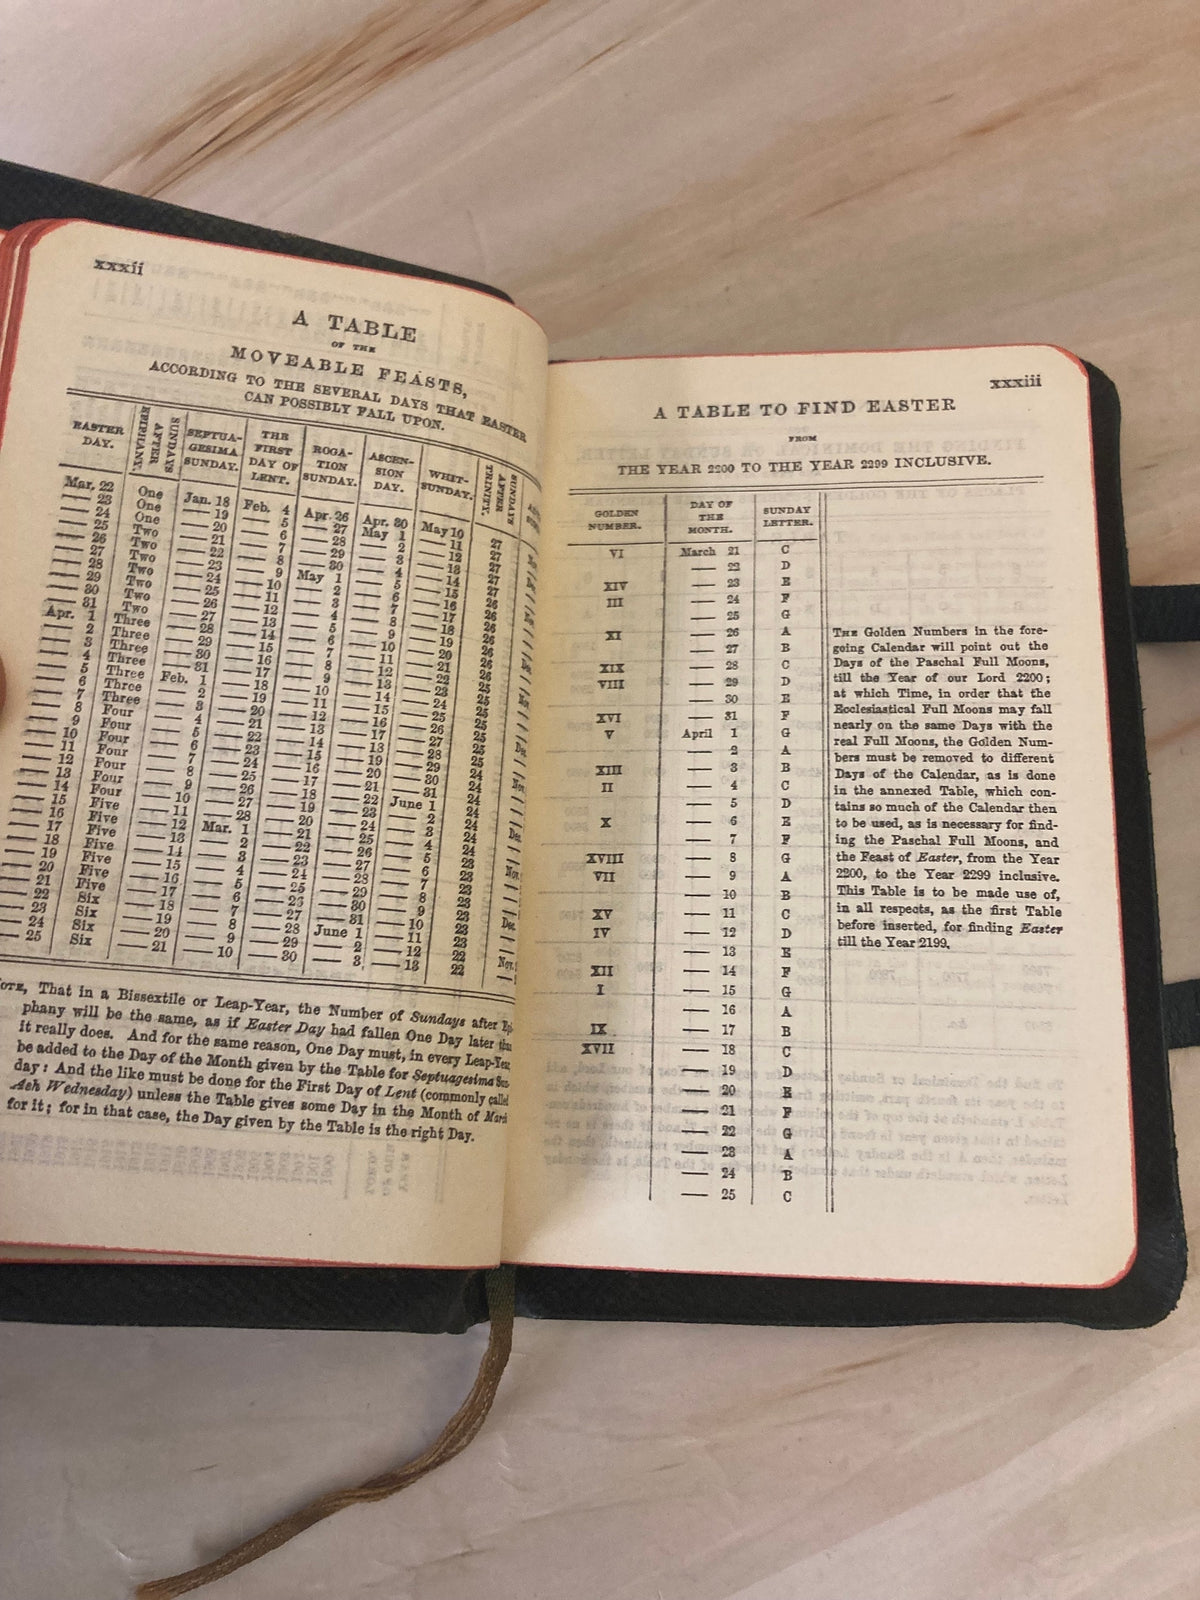 xxxii
A TABLE
OF THE
MOVEABLE FEASTS,
ACCORDING TO THE SEVERAL DAYS THAT EASTER
CAN POSSIBLY FALL UPON.
EASTER DAY. SUNDAYS AFTER EPIPHANY. SEPTUA-GESIMA SUNDAY. THE FIRST DAY OF LENT. ROGA-TION SUNDAY. ASCEN-SION DAY. WHIT-SUNDAY. SUNDAYS AFTER TRINITY.
Mar. 22 One Jan. 18 Feb. 4 Apr. 26 Apr. 30 May 10 27
— 23 One — 19 — 5 — 27 May 1 — 11 27
— 24 One — 20 — 6 — 28 — 2 — 12 27
— 25 Two — 21 — 7 — 29 — 3 — 13 27
— 26 Two — 22 — 8 — 30 — 4 — 14 27
— 27 Two — 23 — 9 May 1 — 5 — 15 26
— 28 Two — 24 — 10 — 2 — 6 — 16 26
— 29 Two — 25 — 11 — 3 — 7 — 17 26
— 30 Two — 26 — 12 — 4 — 8 — 18 26
— 31 Two — 27 — 13 — 5 — 9 — 19 26
Apr. 1 Three — 28 — 14 — 6 — 10 — 20 26
— 2 Three — 29 — 15 — 7 — 11 — 21 26
— 3 Three — 30 — 16 — 8 — 12 — 22 25
— 4 Three — 31 — 17 — 9 — 13 — 23 25
— 5 Three Feb. 1 — 18 — 10 — 14 — 24 25
— 6 Three — 2 — 19 — 11 — 15 — 25 25
— 7 Three — 3 — 20 — 12 — 16 — 26 25
— 8 Four — 4 — 21 — 13 — 17 — 27 25
— 9 Four — 5 — 22 — 14 — 18 — 28 25
— 10 Four — 6 — 23 — 15 — 19 — 29 24
— 11 Four — 7 — 24 — 16 — 20 — 30 24
— 12 Four — 8 — 25 — 17 — 21 — 31 24
— 13 Four — 9 — 26 — 18 — 22 June 1 24
— 14 Four — 10 — 27 — 19 — 23 — 2 24
— 15 Five — 11 — 28 — 20 — 24 — 3 24
— 16 Five — 12 Mar. 1 — 21 — 25 — 4 24
— 17 Five — 13 — 2 — 22 — 26 — 5 23
— 18 Five — 14 — 3 — 23 — 27 — 6 23
— 19 Five — 15 — 4 — 24 — 28 — 7 23
— 20 Five — 16 — 5 — 25 — 29 — 8 23
— 21 Five — 17 — 6 — 26 — 30 — 9 23
— 22 Six — 18 — 7 — 27 — 31 — 10 23
— 23 Six — 19 — 8 — 28 June 1 — 11 23
— 24 Six — 20 — 9 — 29 — 2 — 12 22
— 25 Six — 21 — 10 — 30 — 3 — 13 22
That in a Bissextile or Leap-Year, the Number of Sundays after
phany will be the same, as if Easter Day had fallen One Day later
it really does. And for the same reason, One Day must, in every Leap-Year
be added to the Day of the Month given by the Table for Septuagesima
day: And the like must be done for the First Day of Lent (commonly called
Ash Wednesday) unless the Table gives some Day in the Month of March
for it; for in that case, the Day given by the Table is the right Day.
xxxiii
A TABLE TO FIND EASTER
FROM
THE YEAR 2200 TO THE YEAR 2299 INCLUSIVE.
GOLDEN NUMBER. DAY OF THE MONTH. SUNDAY LETTER.
VI March 21 C
— 22 D
XIV — 23 E
III — 24 F
— 25 G
XI — 26 A
— 27 B
XIX — 28 C
VIII — 29 D
— 30 E
XVI — 31 F
V April 1 G
— 2 A
XIII — 3 B
II — 4 C
— 5 D
X — 6 E
— 7 F
XVIII — 8 G
VII — 9 A
— 10 B
XV — 11 C
IV — 12 D
— 13 E
XII — 14 F
I — 15 G
— 16 A
IX — 17 B
XVII — 18 C
— 19 D
— 20 E
— 21 F
— 22 G
— 23 A
— 24 B
— 25 C
THE Golden Numbers in the fore-
going Calendar will point out the
Days of the Paschal Full Moons,
till the Year of our Lord 2200;
at which Time, in order that the
Ecclesiastical Full Moons may fall
nearly on the same Days with the
real Full Moons, the Golden Num-
bers must be removed to different
Days of the Calendar, as is done
in the annexed Table, which con-
tains so much of the Calendar then
to be used, as is necessary for find-
ing the Paschal Full Moons, and
the Feast of Easter, from the Year
2200, to the Year 2299 inclusive.
This Table is to be made use of,
in all respects, as the first Table
before inserted, for finding Easter
till the Year 2199.